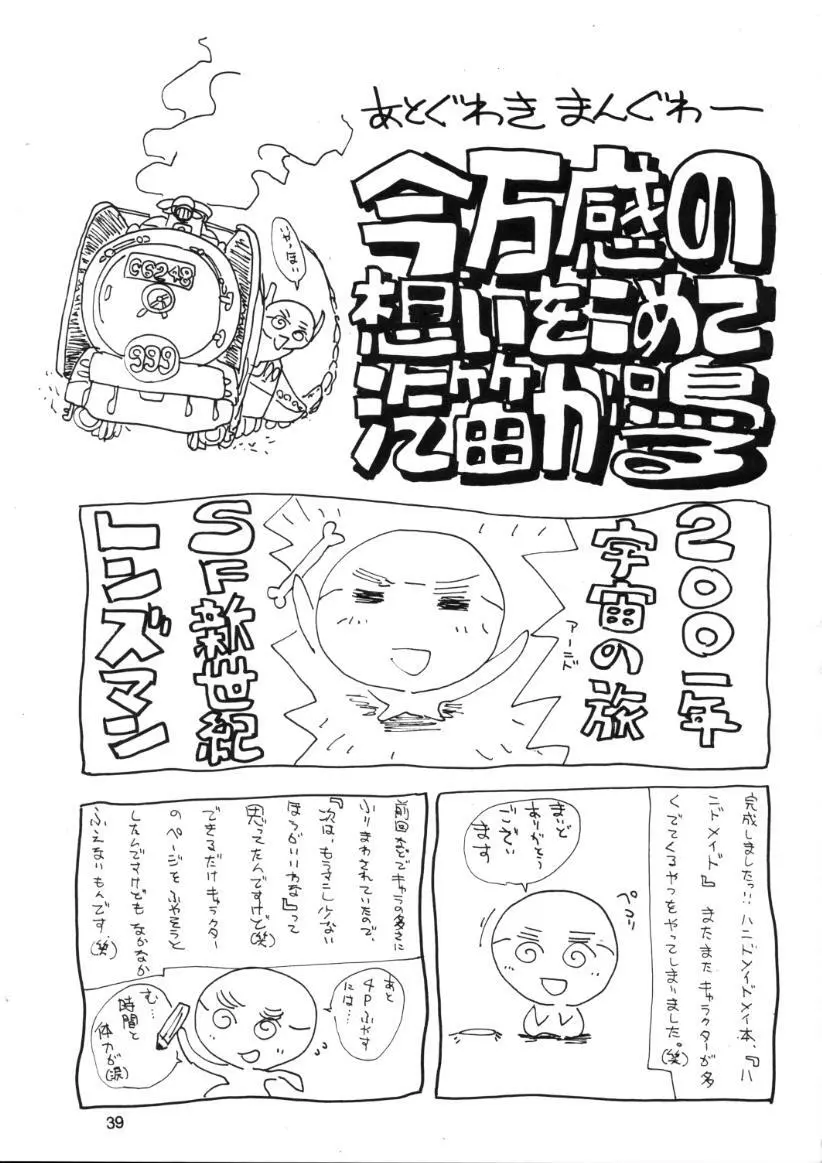 あとぐわき まんぐわー
今万感の
想いをこめて
汽笛が鳴る
いやっほい
C6248
999
2001年
宇宙の旅
SF新世紀
レンズマン
完成しましたっ!! ハンドメイドメイ本、『ハ
ンドメイド』 またまたキャラクターが多
くでてくるやつをやってしまいました。(笑)
まいど
ありがとう
ござい
ます
ペコリ
前回などでキャラの多さに
ふりまわされていたので、
『次は、もう少し少ない
ほうがいいわな』って
思ってたんですけど(笑)
できるだけキャラクター
のページをふやそうと
したんですけども なかなか
ふえないもんです(笑)
あと
4Pふやす
には…
む…
時間と
体力が(涙)
39